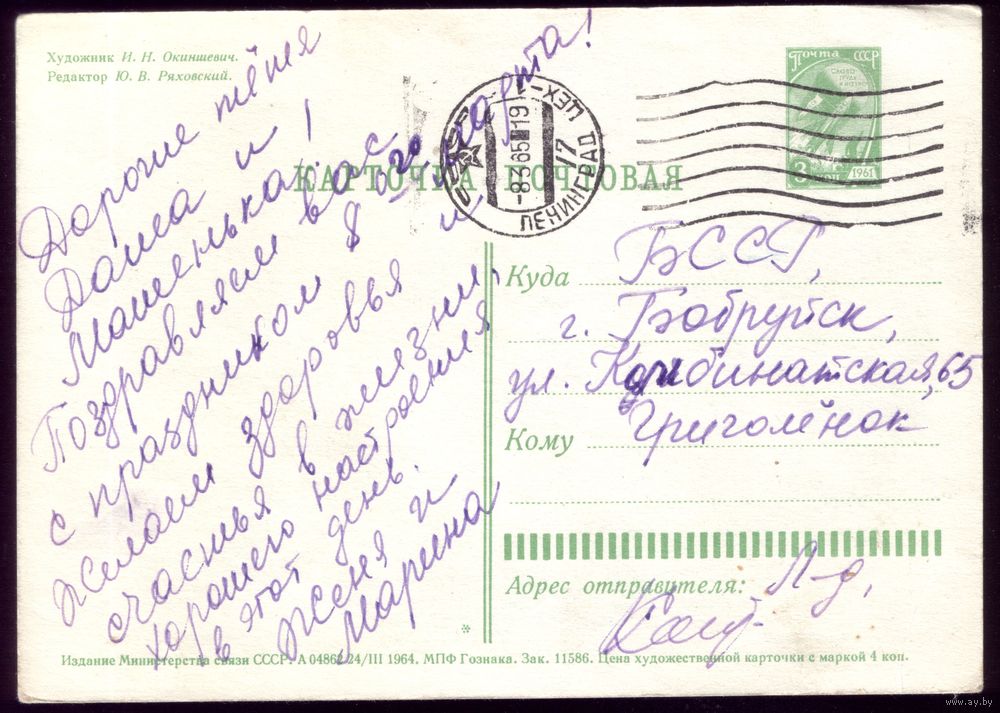 Художник И. Н. Окиншевич.
Редактор Ю. В. Ряховский.
Почта СССР
3 коп
1961
КАРТОЧКА ПОЧТОВАЯ
СССР
-8365
19
ЛЕНИНГРАД 17
ЦЕХ-2
Дорогие тётя
Даша и
Машенька!
Поздравляем вас
с праздником 8го марта!
Желаем здоровья и
счастья в жизни,
хорошего настроения
в этот день.
Женя и
Марина
Куда БССР,
г. Бобруйск,
ул. Комбинатская, 65
Кому Григолёнок
Адрес отправителя: Л-д,
*
Издание Министерства связи СССР. А 04862 24/III 1964. МПФ Гознака. Зак. 11586. Цена художественной карточки с маркой 4 коп.
www.ay.by